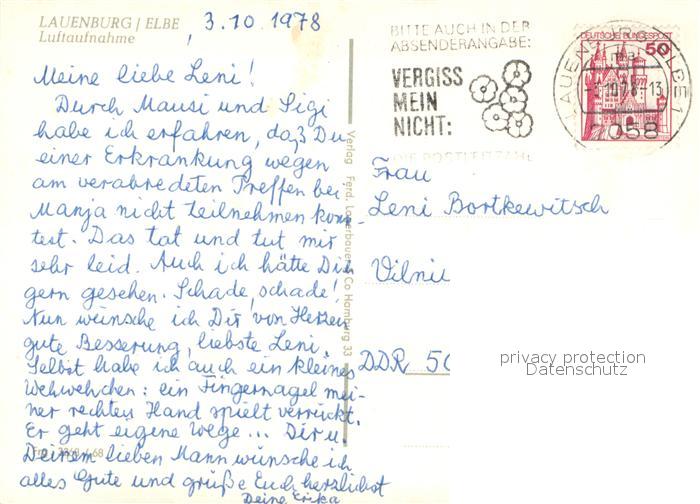 LAUENBURG / ELBE
Luftaufnahme
3.10.1978
Meine liebe Leni!
Durch Mausi und Sigi
habe ich erfahren, daß Du
einer Erkrankung wegen
am verabredeten Treffen bei
Manja nicht teilnehmen konn-
test. Das tat und tut mir
sehr leid. Auch ich hätte Dich
gern gesehen. Schade, schade!
Nun wünsche ich Dir von Herzen
gute Besserung, liebste Leni.
Selbst habe ich auch ein kleines
Wehwehchen: ein Fingernagel mei-
ner rechten Hand spielt verrückt.
Er geht eigene Wege... Dir u.
Deinem lieben Mann wünsche ich
alles Gute und grüße Euch herzlichst
Deine Erika
Verlag Ferd. & Co Hamburg 33
BITTE AUCH IN DER
ABSENDERANGABE:
VERGISS
MEIN
NICHT:
DIE POSTLEITZAHL
DEUTSCHE BUNDESPOST
50
LAUENBURG, ELBE 1
058
Frau
Leni Bortkewitsch
Vilni
DDR 50
privacy protection
Datenschutz